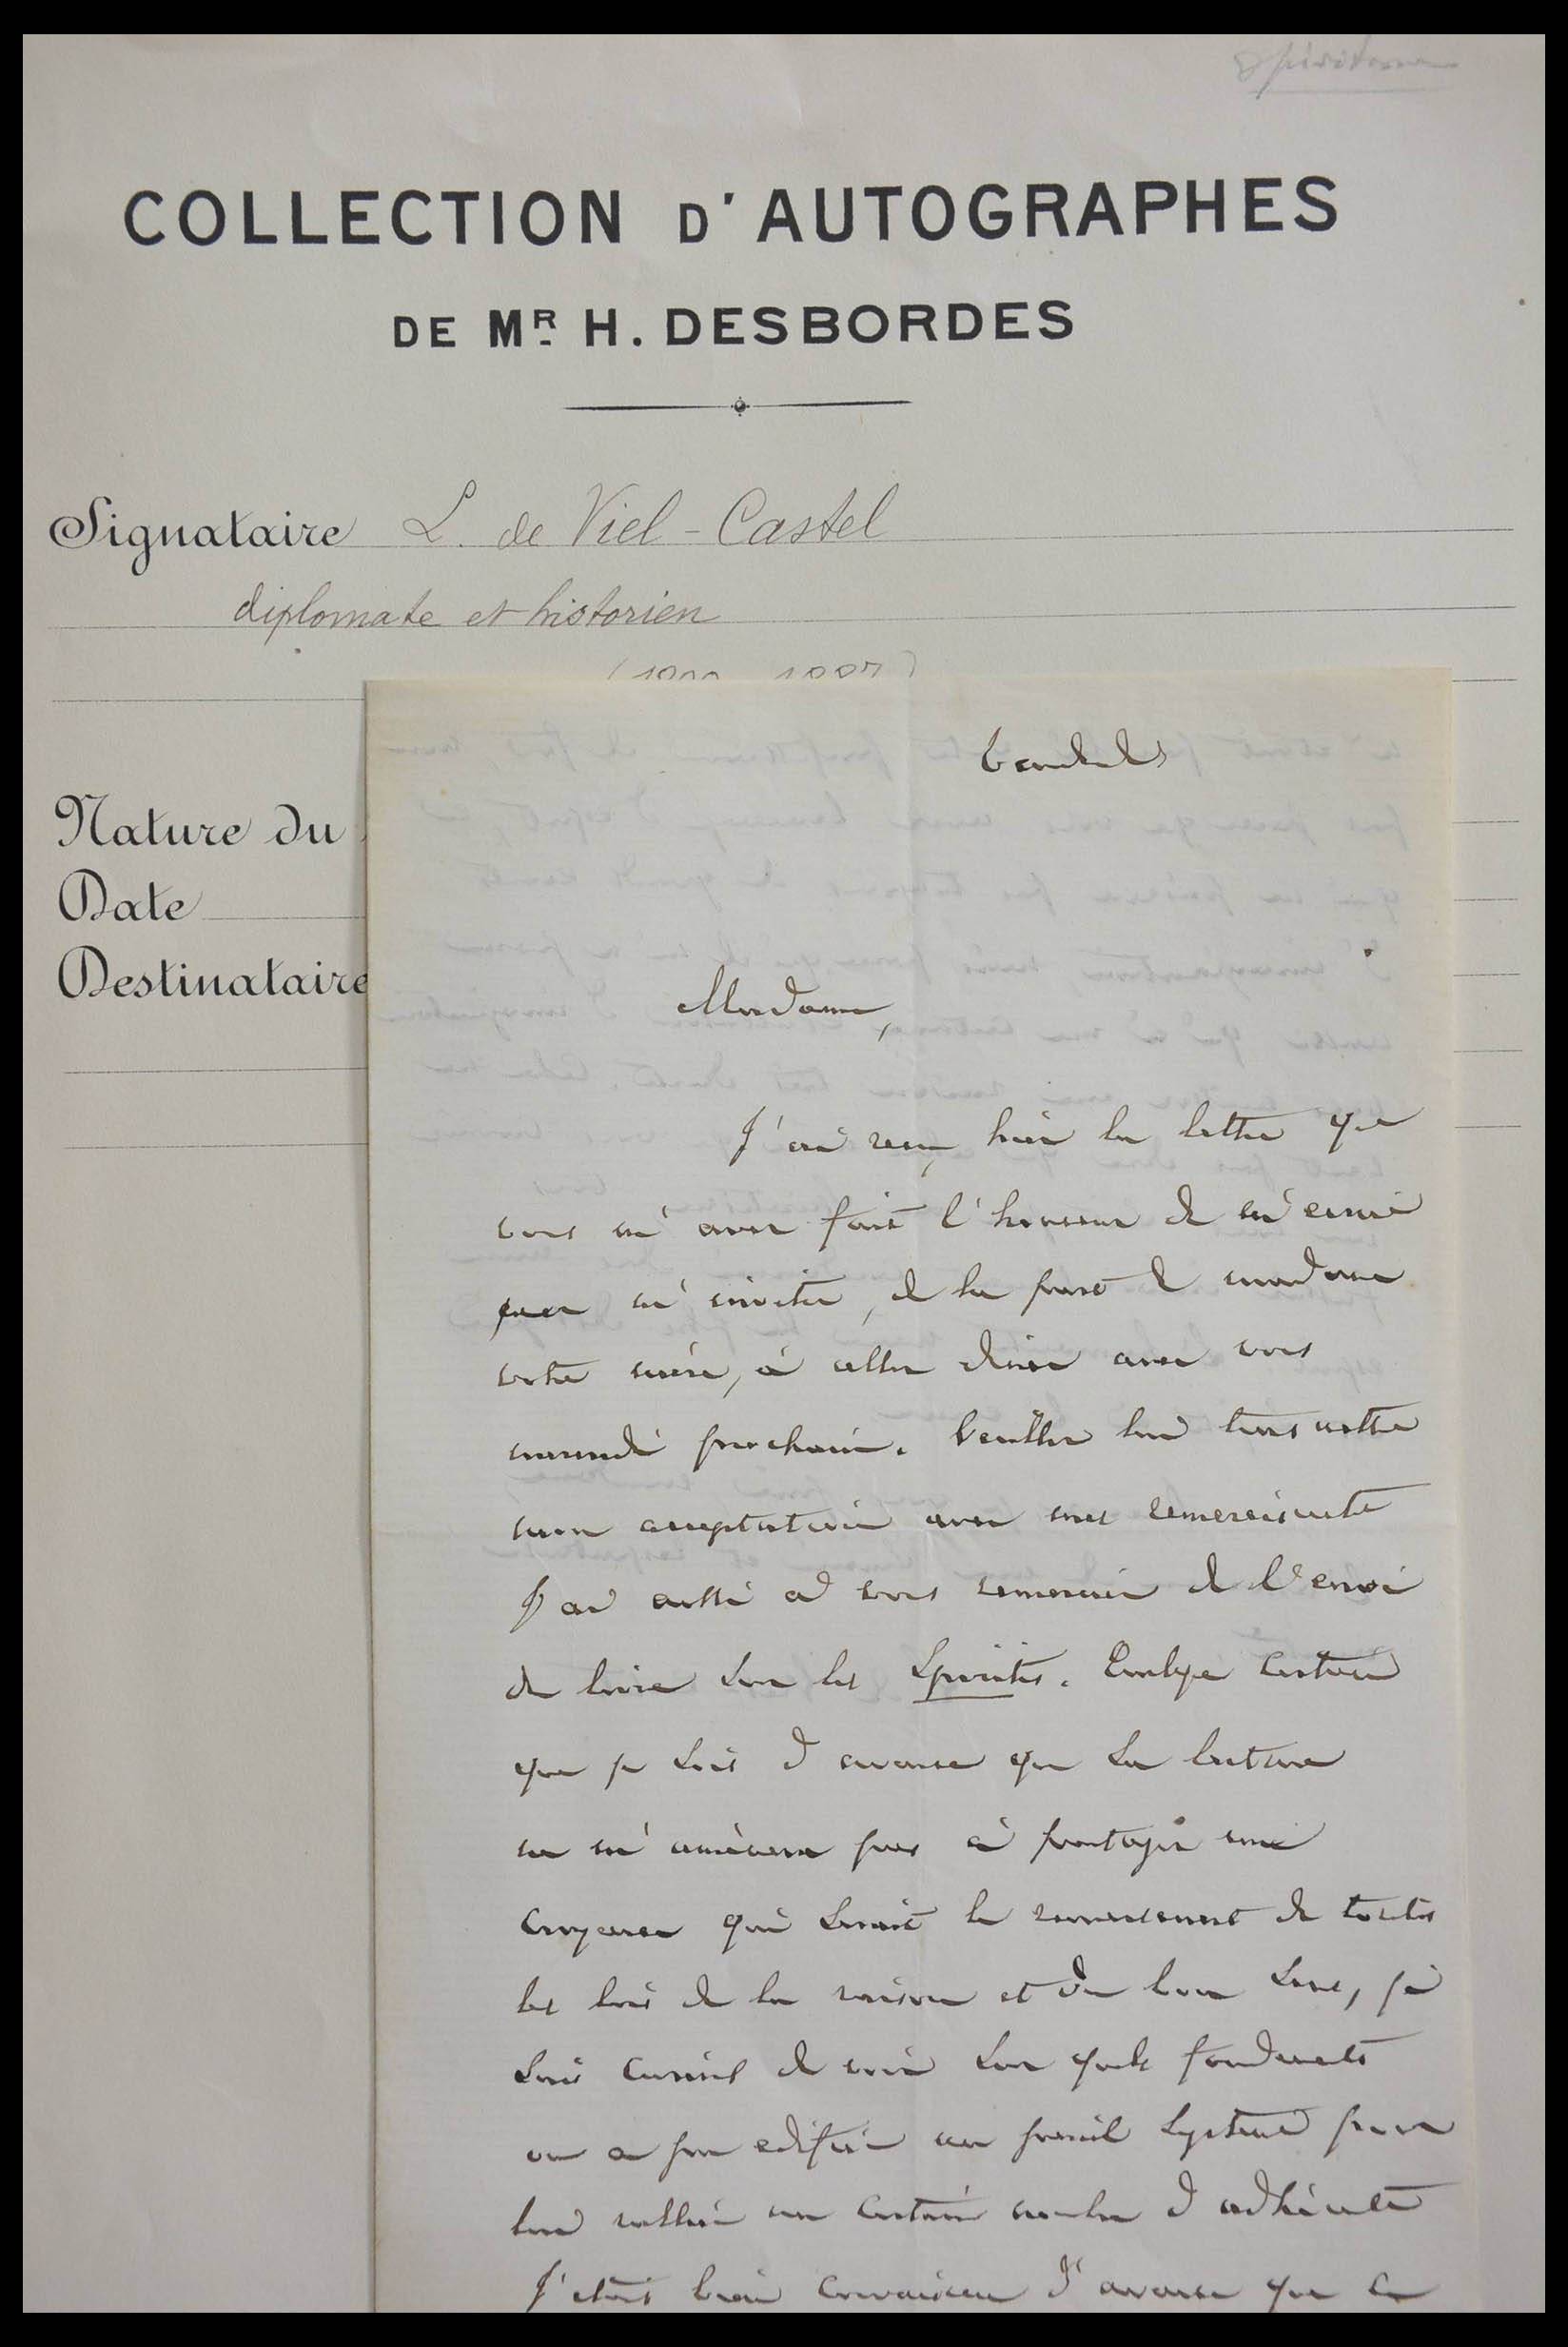 Spiritisme
COLLECTION D'AUTOGRAPHES
DE MR. H. DESBORDES
Signataire L. de Viel-Castel
diplomate et historien
Nature du
Date
Destinataire
Vendredi
Madame,
J'ai reçu hier la lettre que
vous m'avez fait l'honneur de m'écrire
pour m'inviter, de la part de madame
votre mère, à aller dîner avec vous
mercredi prochain. Veuillez lui transmettre
mon acceptation avec mes remerciements
J'ai aussi à vous remercier de l'envoi
du livre sur les Spirites. Quelque certain
que je sois d'avance que sa lecture
ne m'amènera pas à partager une
croyance qui serait le renversement de toutes
les lois de la raison et du bon sens, je
suis curieux de voir sur quels fondements
on a pu edifier un pareil système pour
lui rallier un certain nombre d'adhérents
J'étais bien convaincu d'avance que ce